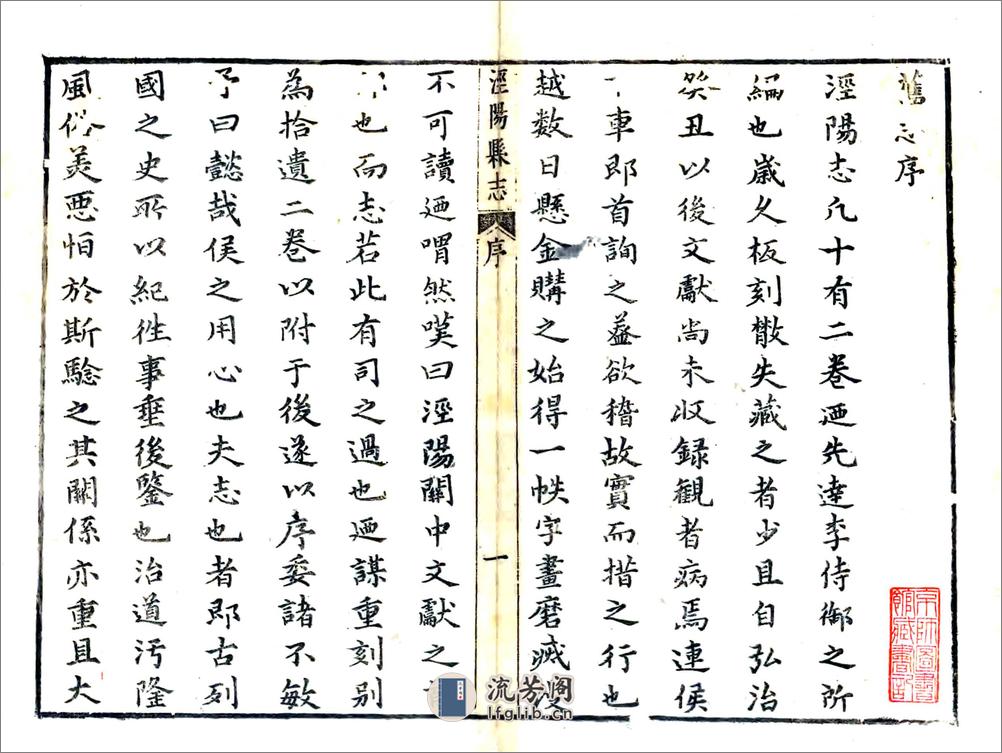 舊志序
涇陽志凡十有二卷廼先達李侍御之所
編也歲久板刻散失藏之者少且自弘治
癸丑以後文獻尚未收録観者病焉連侯
車即首詢之葢欲稽故實而措之行也
越数日懸金購之始得一帙字畫磨滅
不可讀廼喟然嘆曰涇陽關中文獻之
也而志若此有司之過也廼謀重刻别
為拾遺二卷以附于後遂以序委諸不敏
予曰懿哉侯之用心也夫志也者即古列
國之史所以紀徃事垂後鑒也治道汚隆
風俗美悪怕於斯驗之其關係亦重且大
涇陽縣志
序
一
京師圖書館藏書記
流芳阁
lfglib.cn